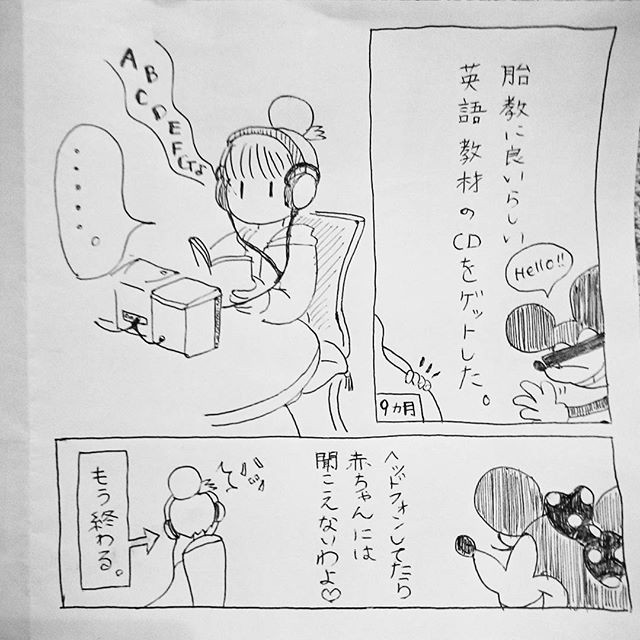 胎教に良いらしい
英語教材の
CDをゲットした。
Hello!!
9ヵ月
A B
C D E
F G
・・・・・。
ヘッドフォンしてたら
赤ちゃんには
聞こえないわよ♡
もう終わる。